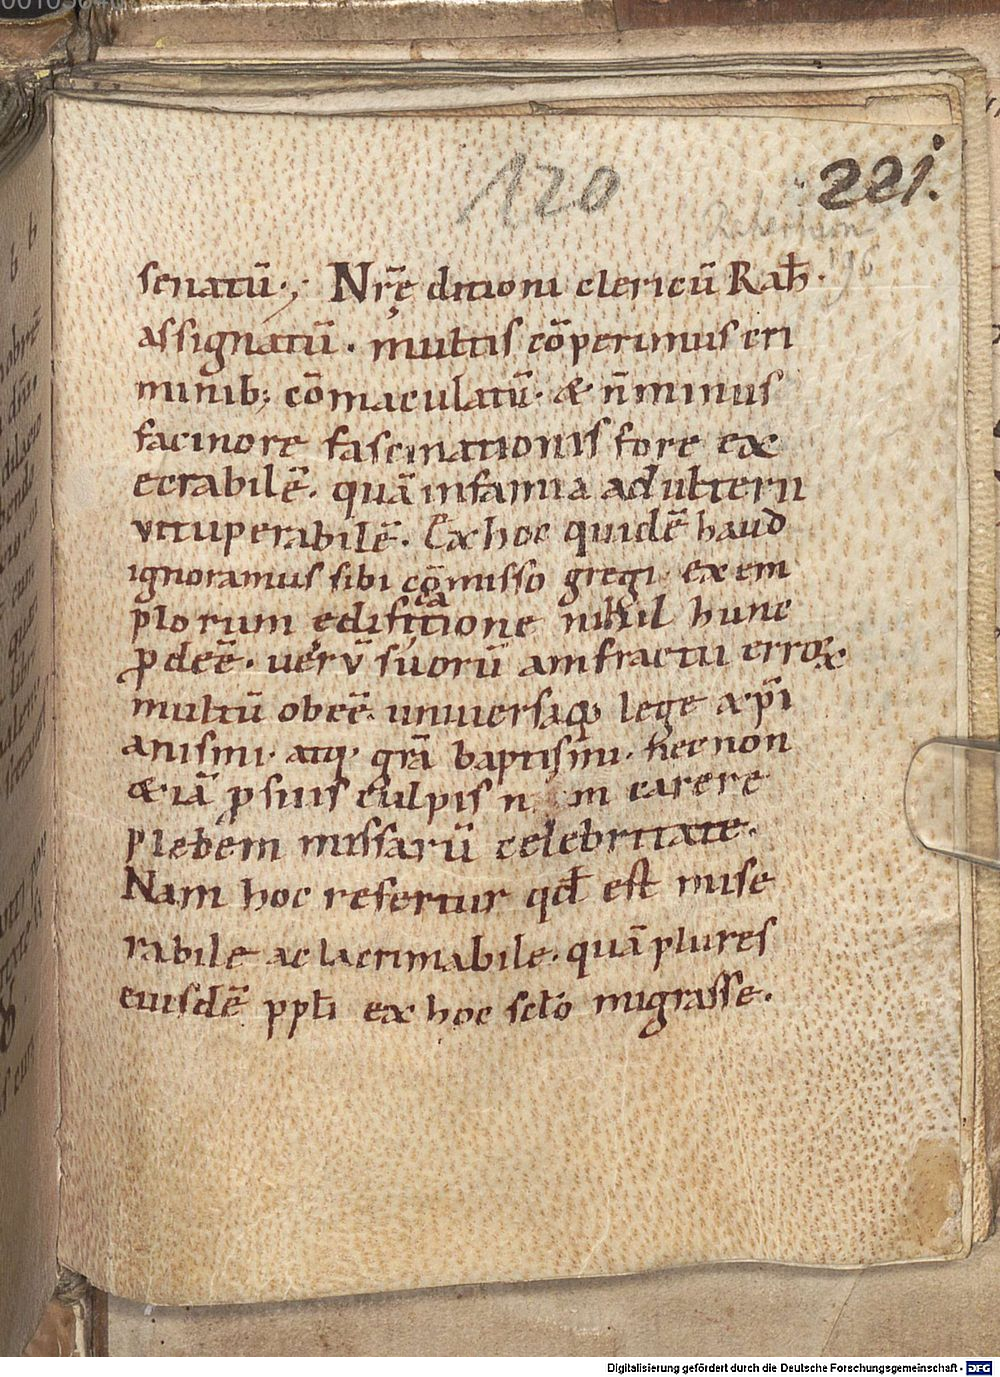 120
221.
senatū·; Nr̄ę ditioni clericū Rab̄·
assignatū· multis cōperimus cri
minib; cōmaculatū· & n̄ minus
facinore fascinationis fore ex
ecrabilē· quā infamia adulterii
vituperabilē· Ex hoc quidē haud
ignoramus sibi cōmisso gregi exem
plorum edificatione nihil hunc
ꝓdeē· uerū suorū amfractu erroꝝ
multū obeē· uniuersaq; lege xp̄i
anismi· atq; gr̄a baptismi· necnon
&iā ꝓ suis culpis carere
plebem missarū celebritate·
Nam hoc refertur qd̄ est mise
rabile ac lacrimabile· quā plures
eiusdē ppl̄i ex hoc sc̄lo migrasse·
Digitalisierung gefördert durch die Deutsche Forschungsgemeinschaft - DFG